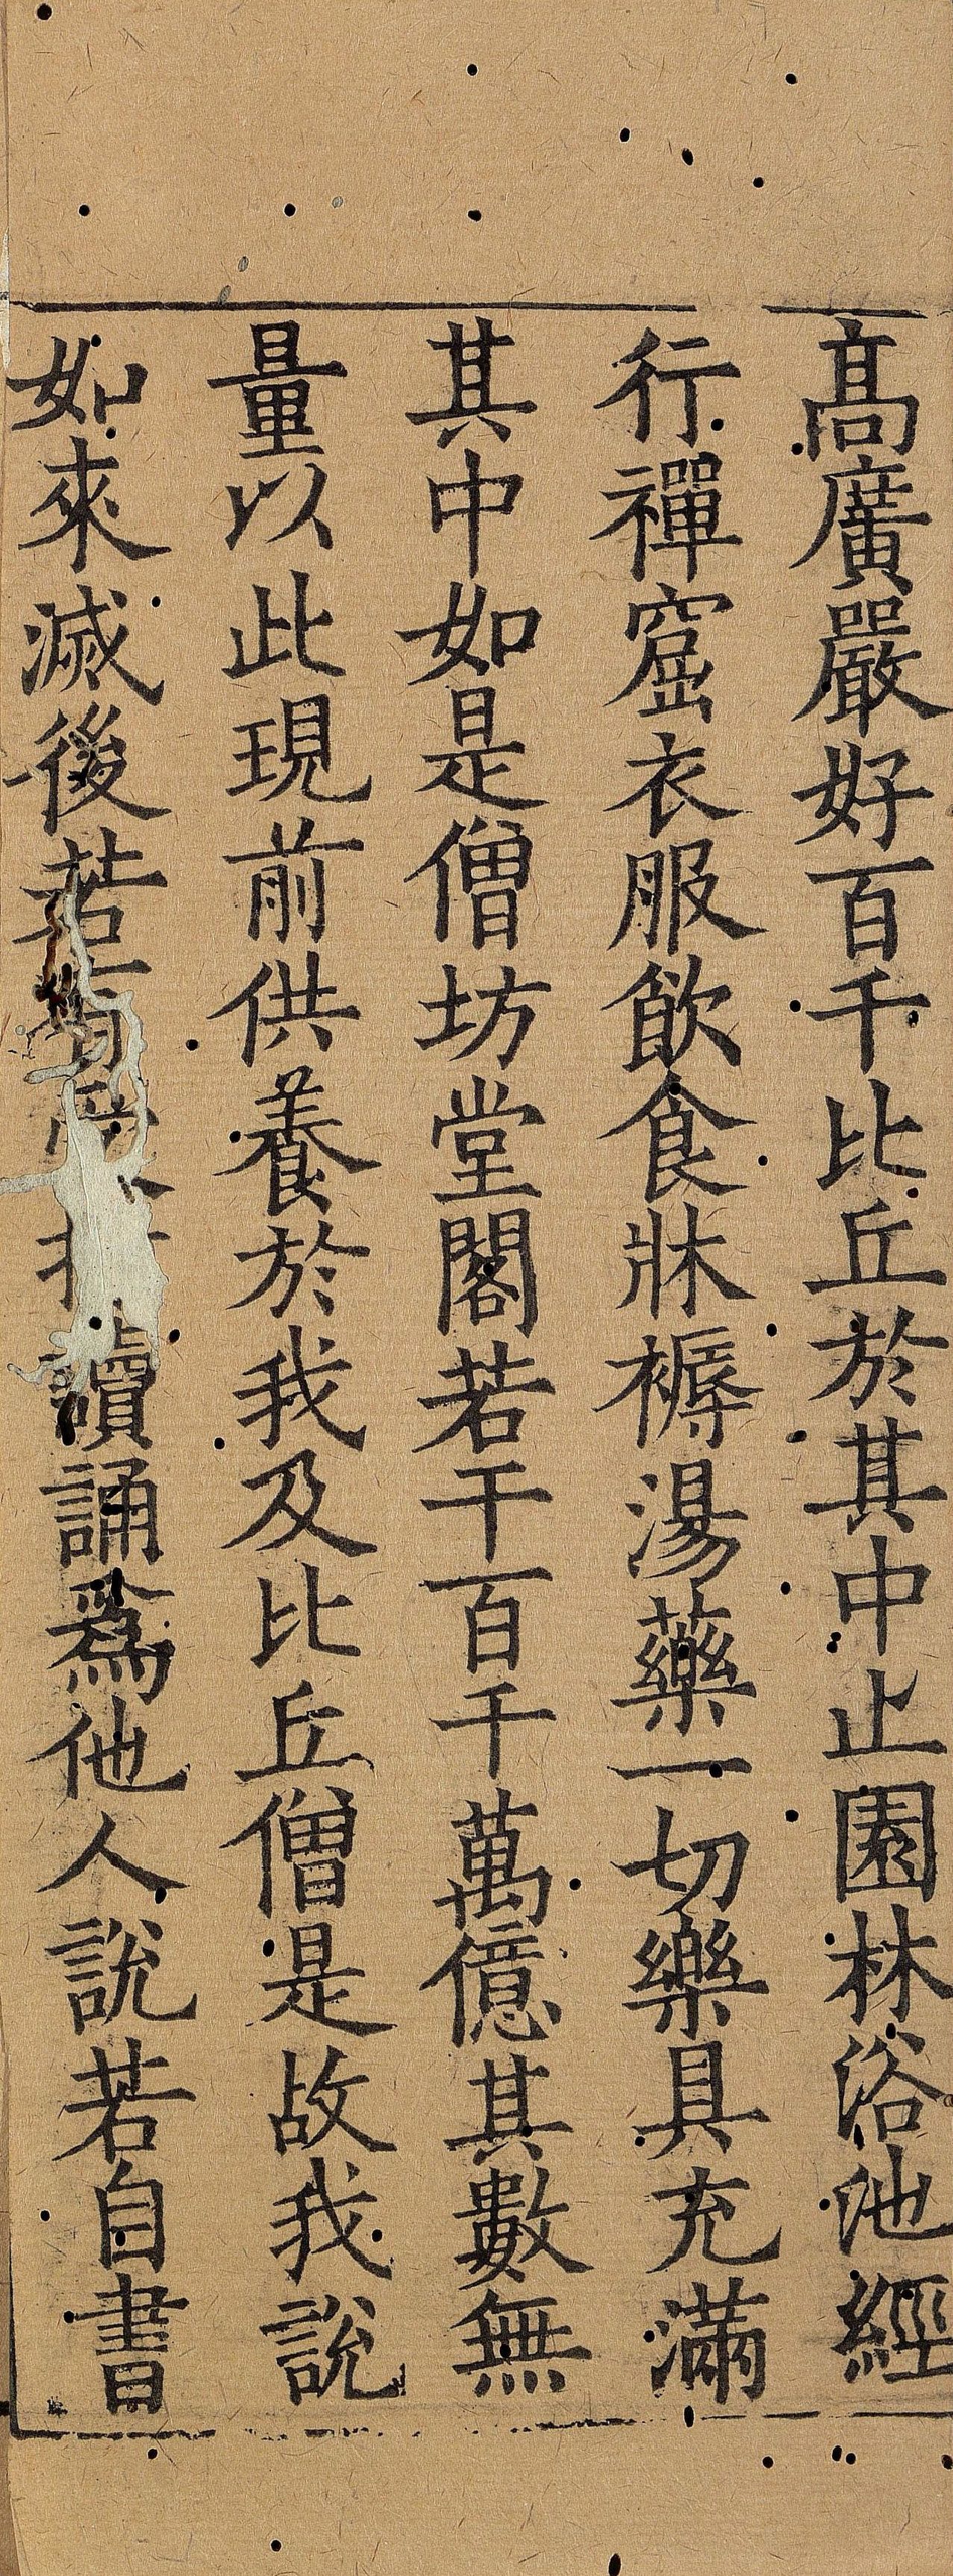 高廣嚴好百千比丘於其中止園林浴池經
行禪窟衣服飮食牀褥湯藥一切樂具充滿
其中如是僧坊堂閣若干百千萬億其數無
量以此現前供養於我及比丘僧是故我說
如來滅後若有讀誦爲他人說若自書